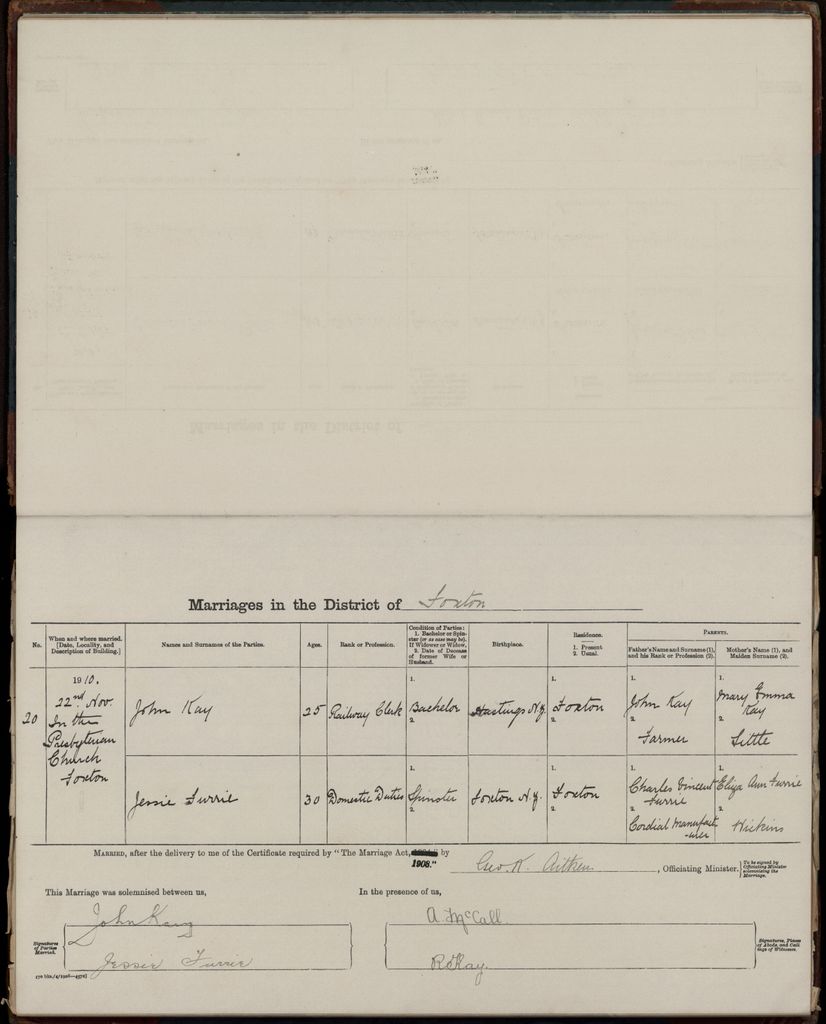 Marriages in the District of Foxton
No.
When and where married. [Date, Locality, and Description of Building.]
Names and Surnames of the Parties.
Ages.
Rank or Profession.
Condition of Parties: 1. Bachelor or Spinster (or as case may be). If Widower or Widow, 2. Date of Decease of former Wife or Husband.
Birthplace.
Residence. 1. Present 2. Usual.
Parents.
Father's Name and Surname (1), and his Rank or Profession (2).
Mother's Name (1), and Maiden Surname (2).
20
1910.
22nd Nov.
In the
Presbyterian
Church
Foxton
John Kay
25
Railway Clerk
1.
Bachelor
2.
Hastings N.Z.
1.
Foxton
2.
1.
John Kay
2.
Farmer
1.
Mary Emma
Kay
2.
Little
Jessie Furrie
30
Domestic Duties
1.
Spinster
2.
Foxton N.Z.
1.
Foxton
2.
1.
Charles Vincent
Furrie
2.
Cordial Manufact
-urer
1.
Eliza Ann Furrie
2.
Hickins
Married, after the delivery to me of the Certificate required by "The Marriage Act, 1908." by Geo. K. Aitken, Officiating Minister. [To be signed by Officiating Minister solemnizing the Marriage.
This Marriage was solemnised between us,
In the presence of us,
Signatures of Parties Married.
John Kay
Jessie Furrie
A. McCall
R. Kay.
Signatures, Places of Abode, and Callings of Witnesses.